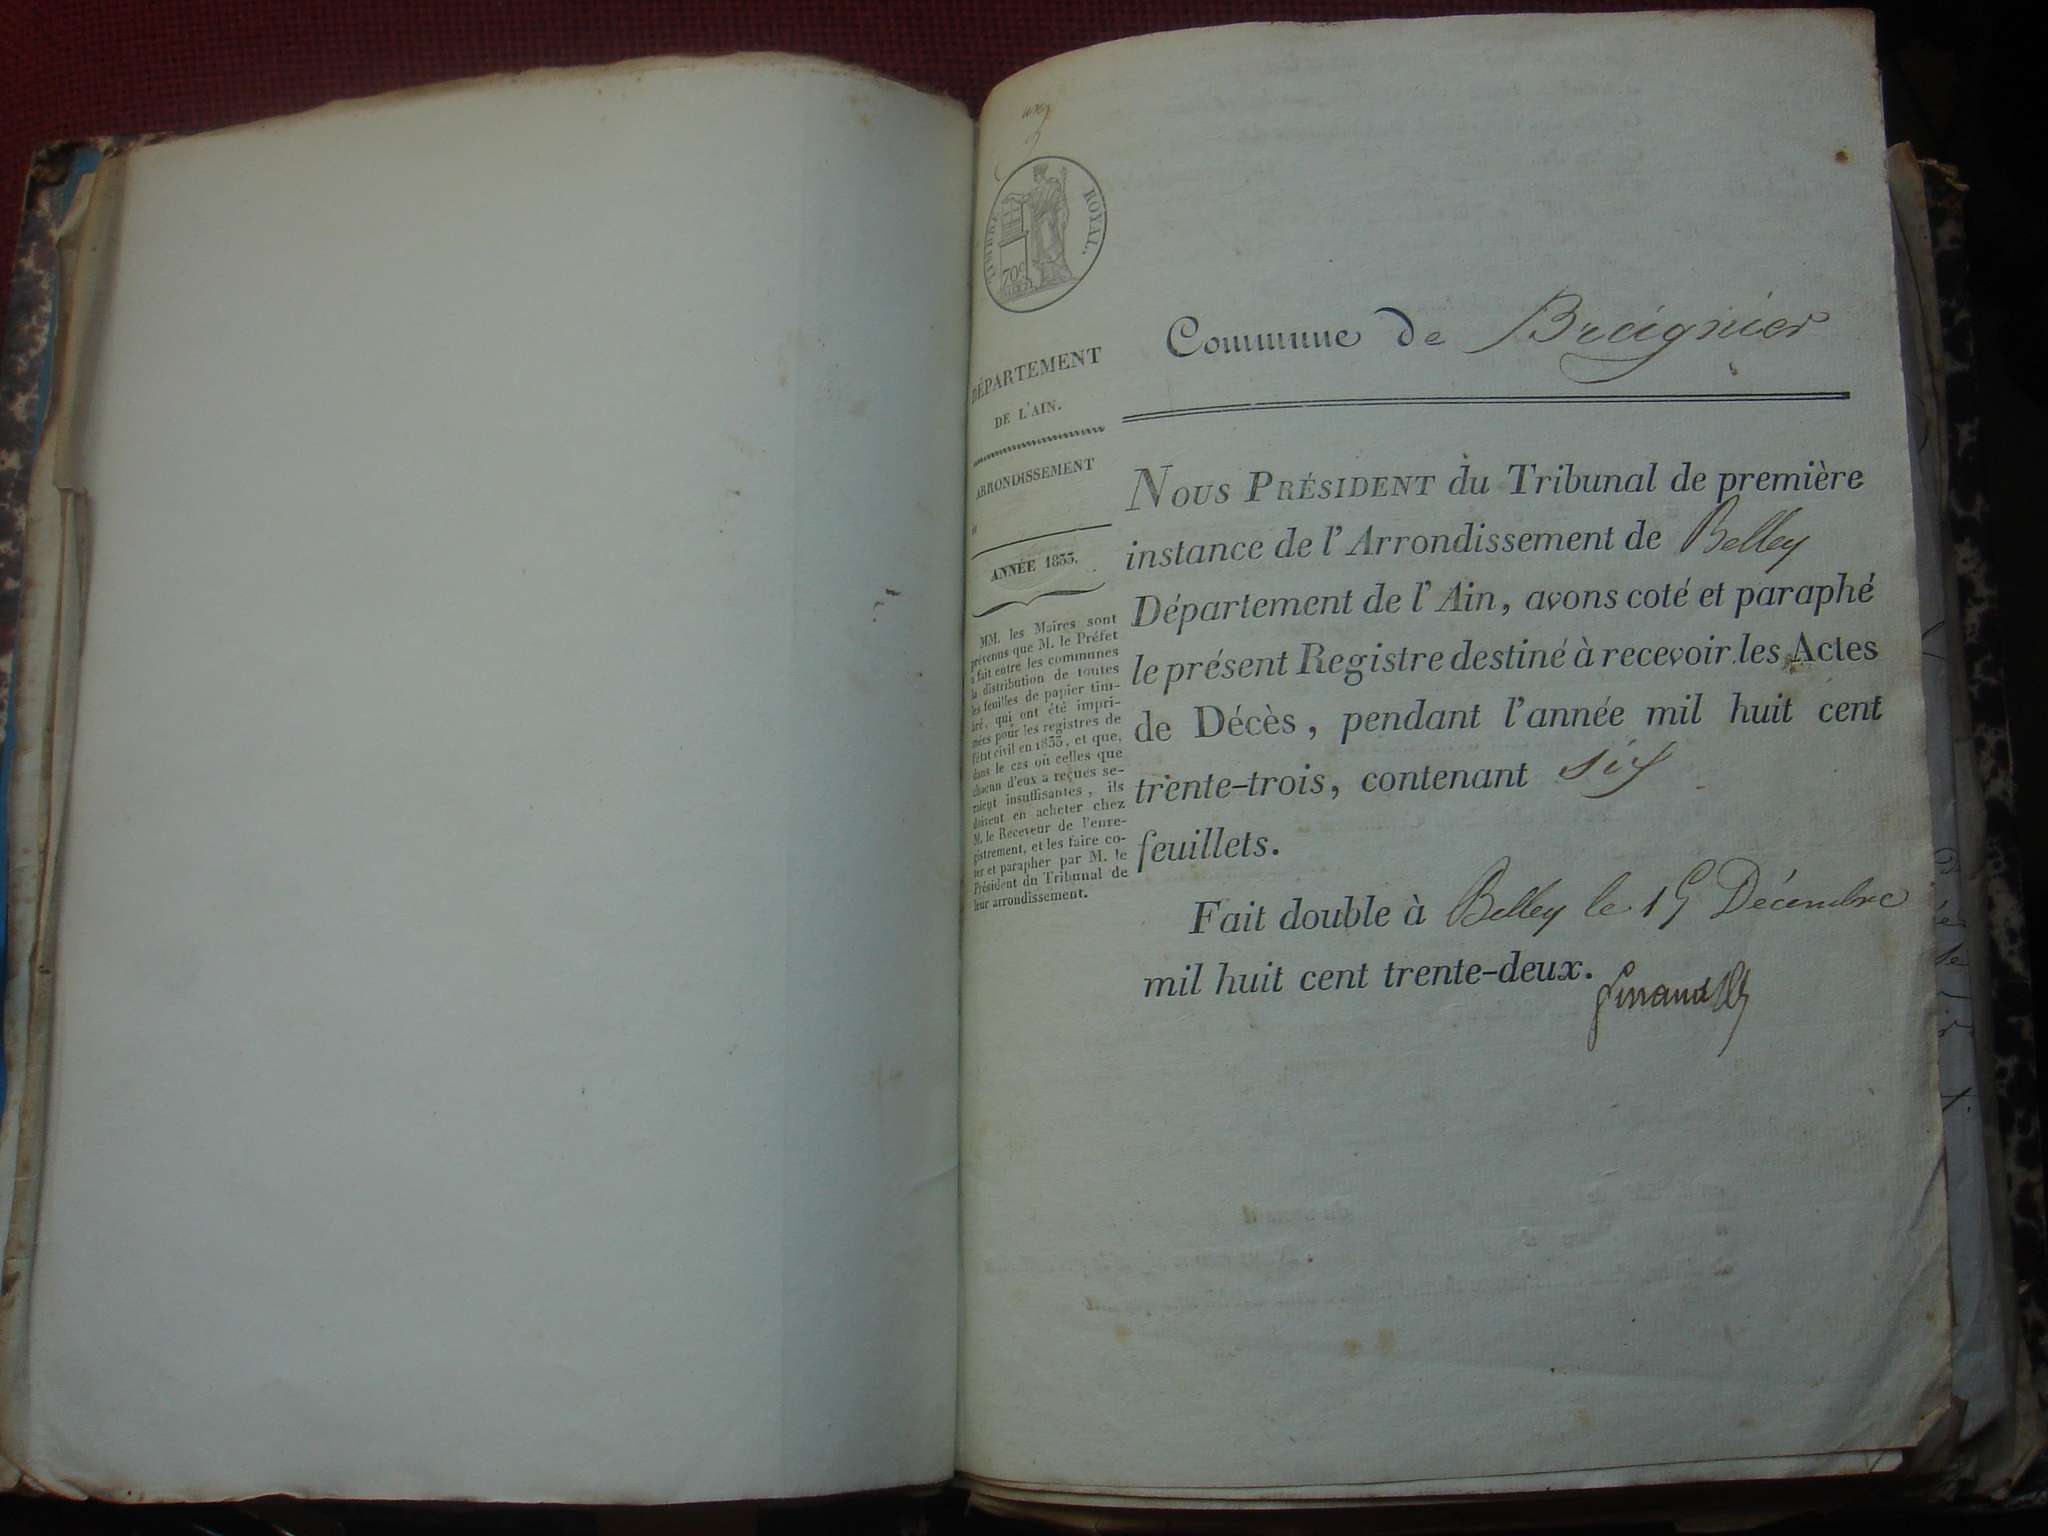 TIMBRE ROYAL.
70c
DÉPARTEMENT
DE L'AIN.
ARRONDISSEMENT
ANNÉE 1833.
MM. les Maires sont
prévenus que M. le Préfet
a fait entre les communes
la distribution de toutes
les feuilles de papier tim-
bré, qui ont été impri-
mées pour les registres de
l'état civil en 1833, et que,
dans le cas où celles que
chacun d'eux a reçues se-
raient insuffisantes, ils
doivent en acheter chez
M. le Receveur de l'enre-
gistrement, et les faire co-
ter et parapher par M. le
Président du Tribunal de
leur arrondissement.
Commune de Breignier
NOUS PRÉSIDENT du Tribunal de première
instance de l'Arrondissement de Belley
Département de l'Ain, avons coté et paraphé
le présent Registre destiné à recevoir les Actes
de Décès, pendant l'année mil huit cent
trente-trois, contenant six
feuillets.
Fait double à Belley le 15 Décembre
mil huit cent trente-deux.